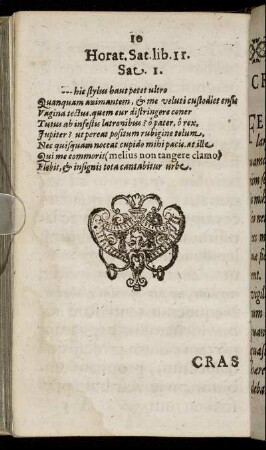 10
Horat. Sat. lib. II.
Sat. I.
---- hic stylus haut petet ultro
Quanquam animantem, & me veluti custodiet ensis
Vagina tectus. quem cur distringere coner
Tutus ab infestis latronibus? ô pater, ô rex,
Jupiter? ut pereat positum rubigine telum,
Nec quisquam noceat cupido mihi pacis. at ille
Qui me commorit (melius non tangere clamo)
Flebit, & insignis tota cantabitur urbe.
CRAS